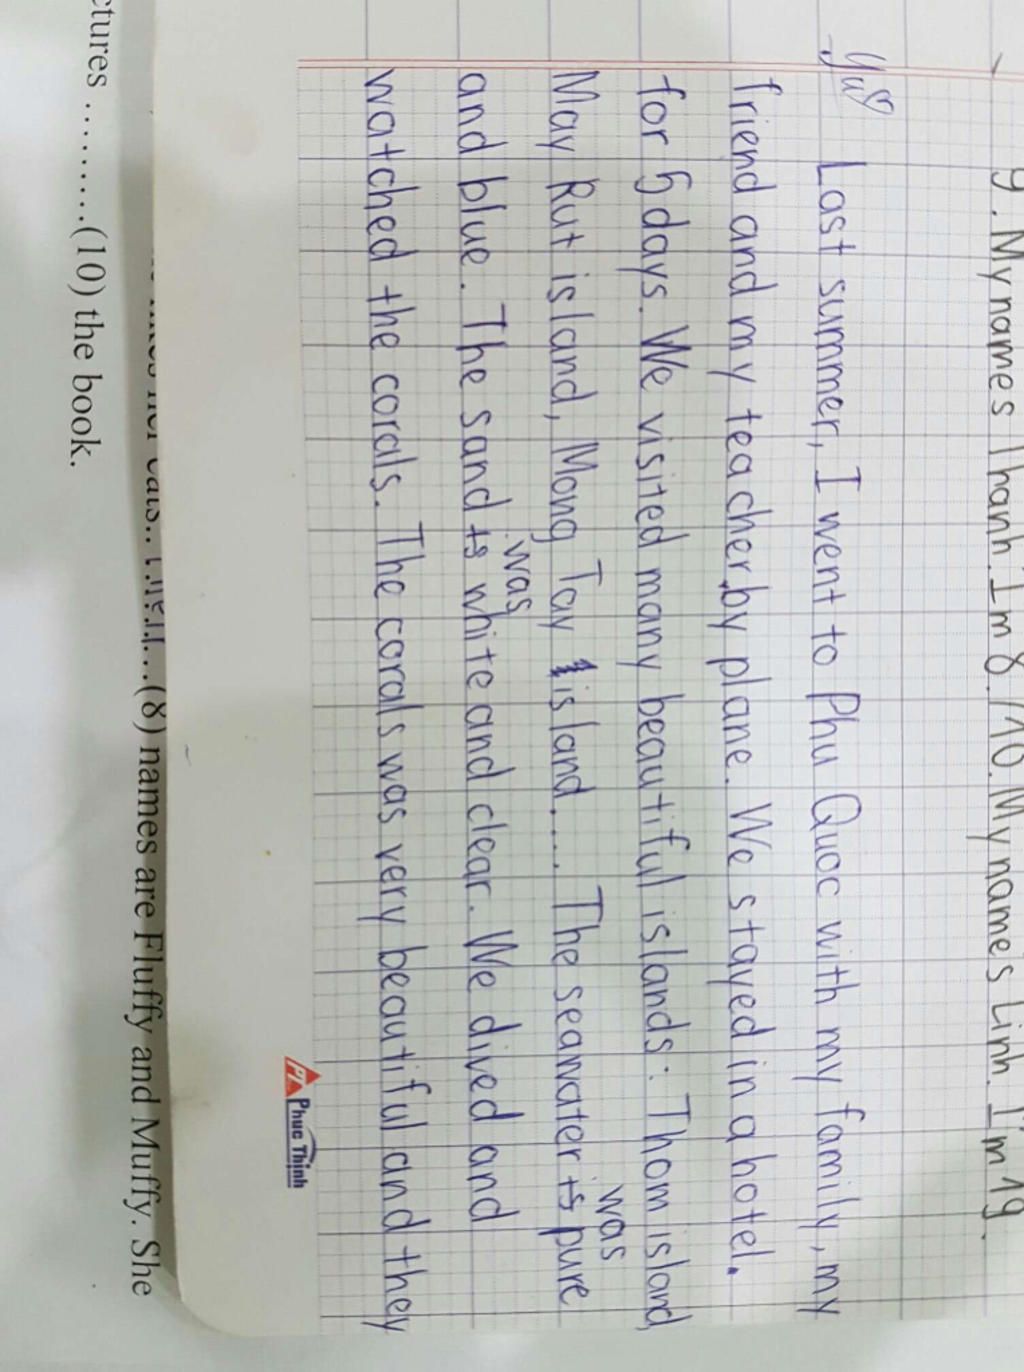 9. My names Thanh. Im 8/10. My name's Linh. I'm 19.
Yu
Last summer, I went to Phu Quoc with my family, my
friend and my teacher, by plane. We stayed in a hotel.
for 5 days. We visited many beautiful islands: Thom island,
was
May Rut island, Mong Tay island.... The seawater is pure
was
and blue. The sand is white and clear. We dived and
watched the corals. The corals was very beautiful and they
Phuc Thinh
(8) names are Fluffy and Muffy. She
ctures ..........(10) the book.